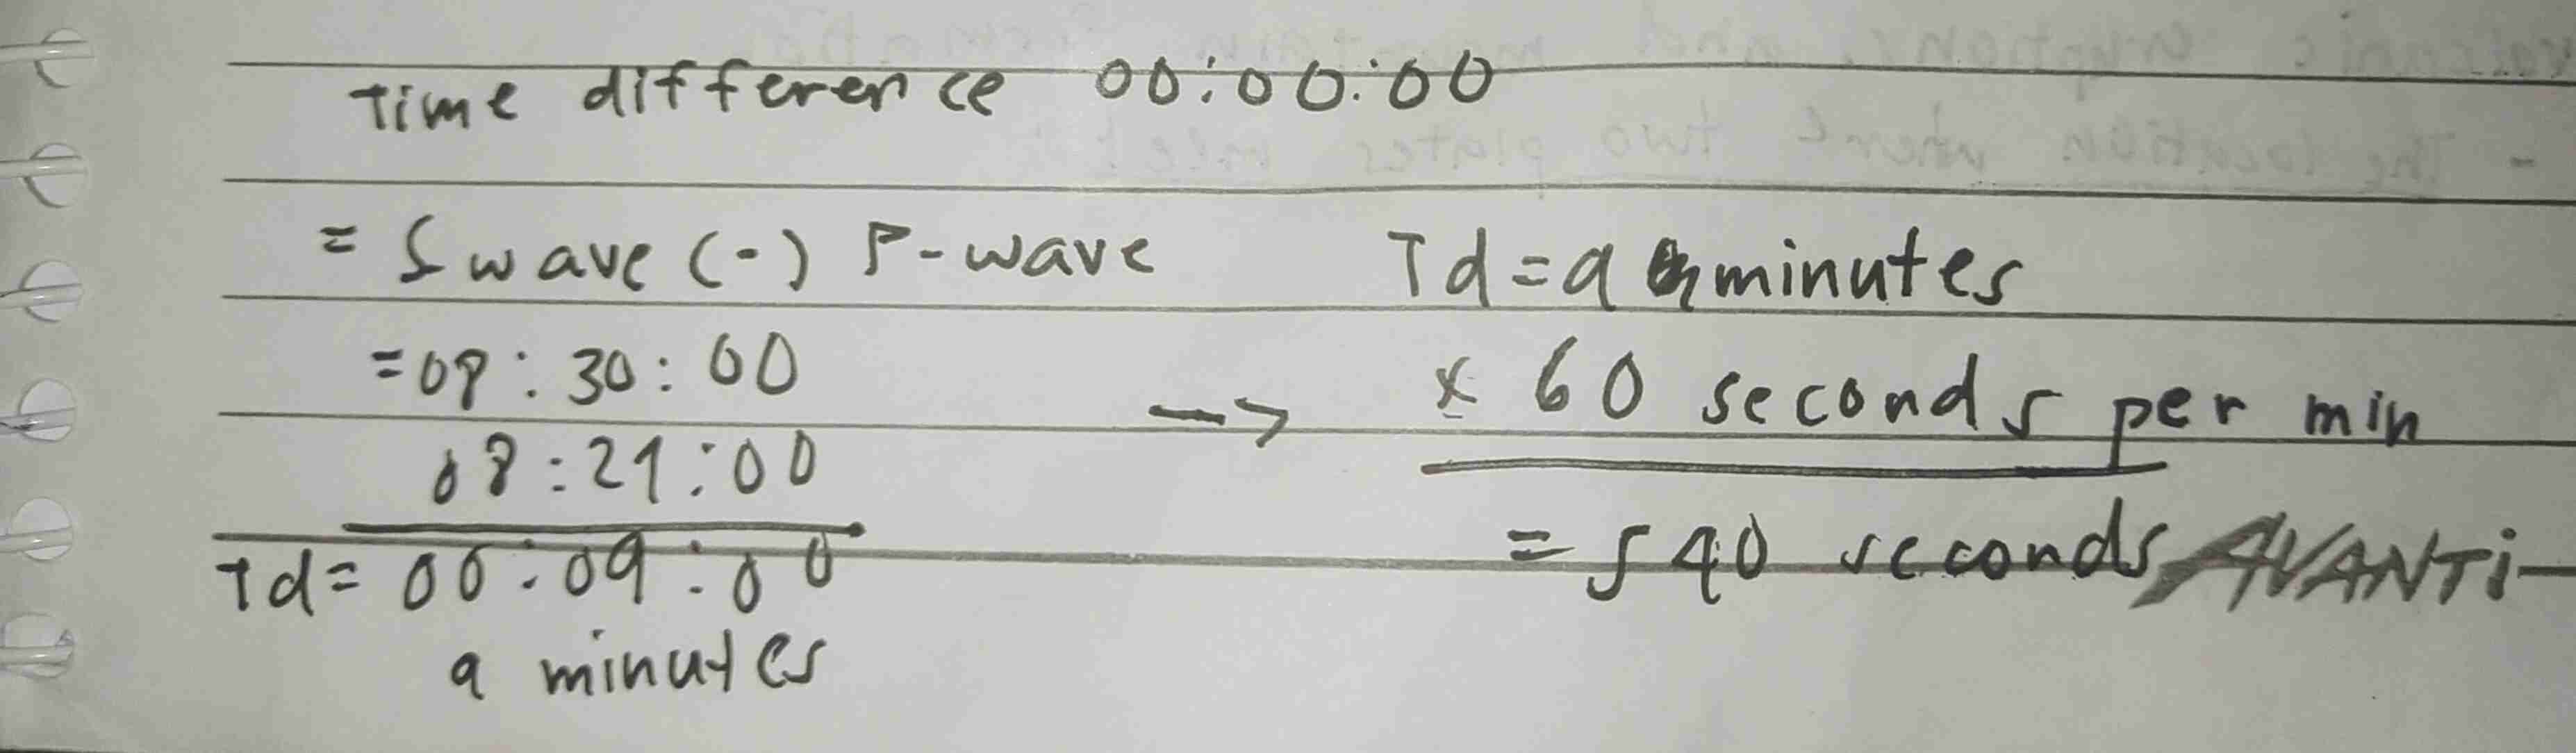 Time difference 00:00:00
= S wave (-) P-wave
= 08 : 30 : 00
08 : 21 : 00
Td = 00 : 09 : 00
9 minutes
Td = 9 minutes
-->
x 60 seconds per min
= 540 seconds AVANTi